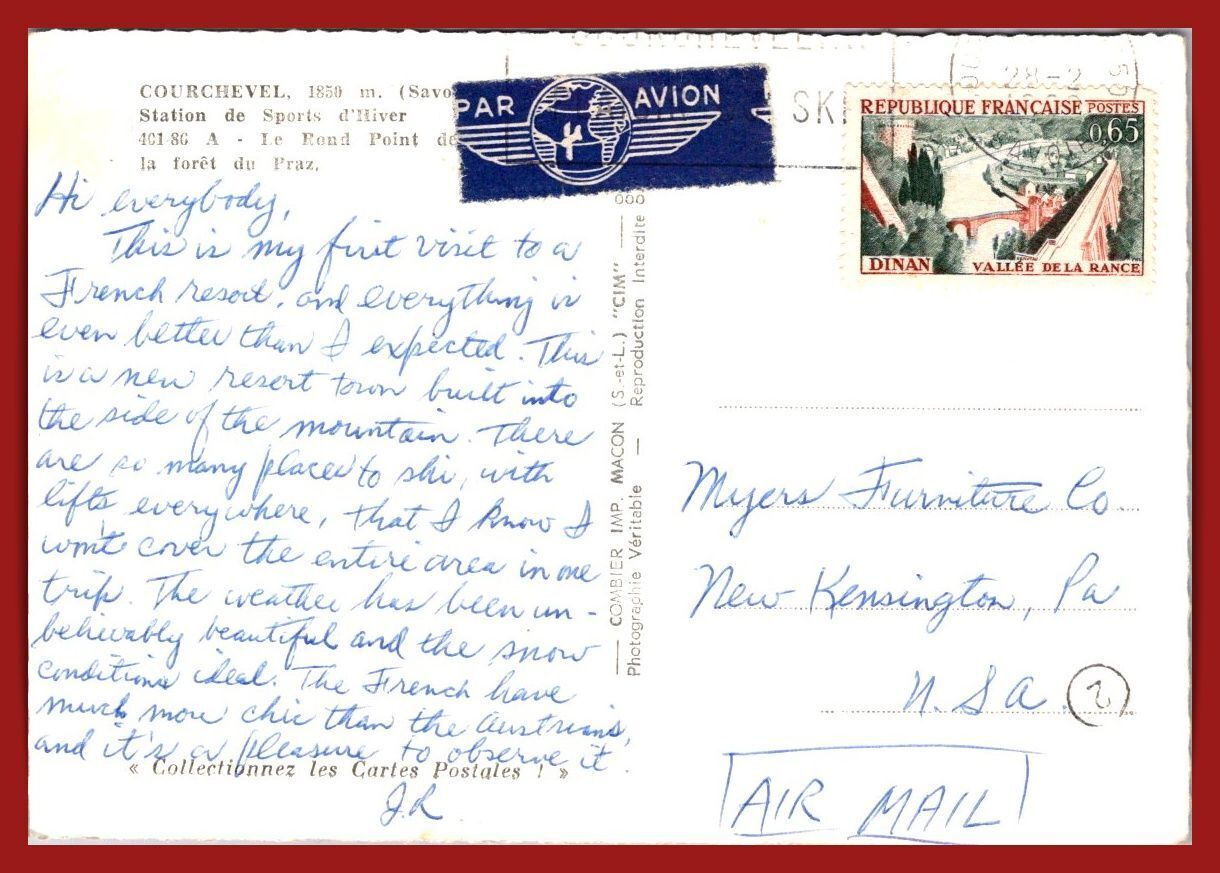 COURCHEVEL, 1850 m. (Savo
Station de Sports d'Hiver
461-86 A - Le Rond Point de
la forêt du Praz.
Hi everybody,
This is my first visit to a
French resort, and everything is
even better than I expected. This
is a new resort town built into
the side of the mountain. There
are so many places to ski, with
lifts everywhere, that I know I
won't cover the entire area in one
trip. The weather has been un-
believably beautiful and the snow
conditions ideal. The French have
much more chic than the Austrians,
and it's a pleasure to observe it.
« Collectionnez les Cartes Postales ! »
J.R.
PAR AVION
COMBIER IMP. MACON (S.-et-L.) "CIM"
Photographie Véritable — Reproduction Interdite
SKI
28-2
REPUBLIQUE FRANÇAISE POSTES
0,65
DINAN VALLÉE DE LA RANCE
Myers Furniture Co.
New Kensington, Pa
U.S.A.
2
AIR MAIL